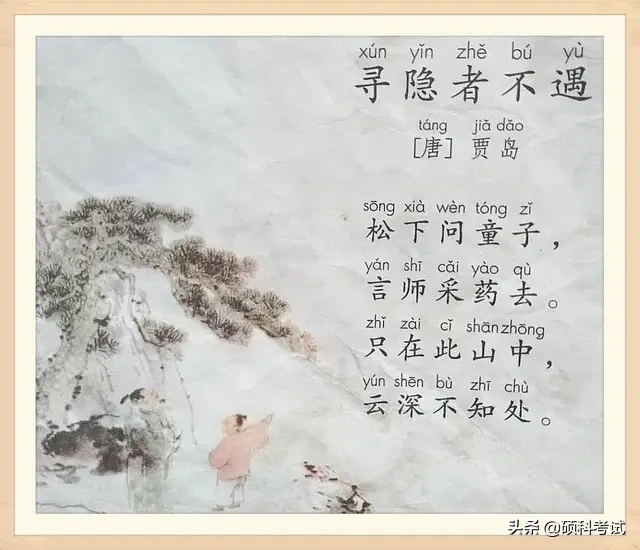 xún yǐn zhě bú yù
寻隐者不遇
táng jiǎ dǎo
[唐] 贾岛
sōng xià wèn tóng zǐ
松下问童子，
yán shī cǎi yào qù
言师采药去。
zhǐ zài cǐ shān zhōng
只在此山中，
yún shēn bù zhī chù
云深不知处。
头条 @硕科考试